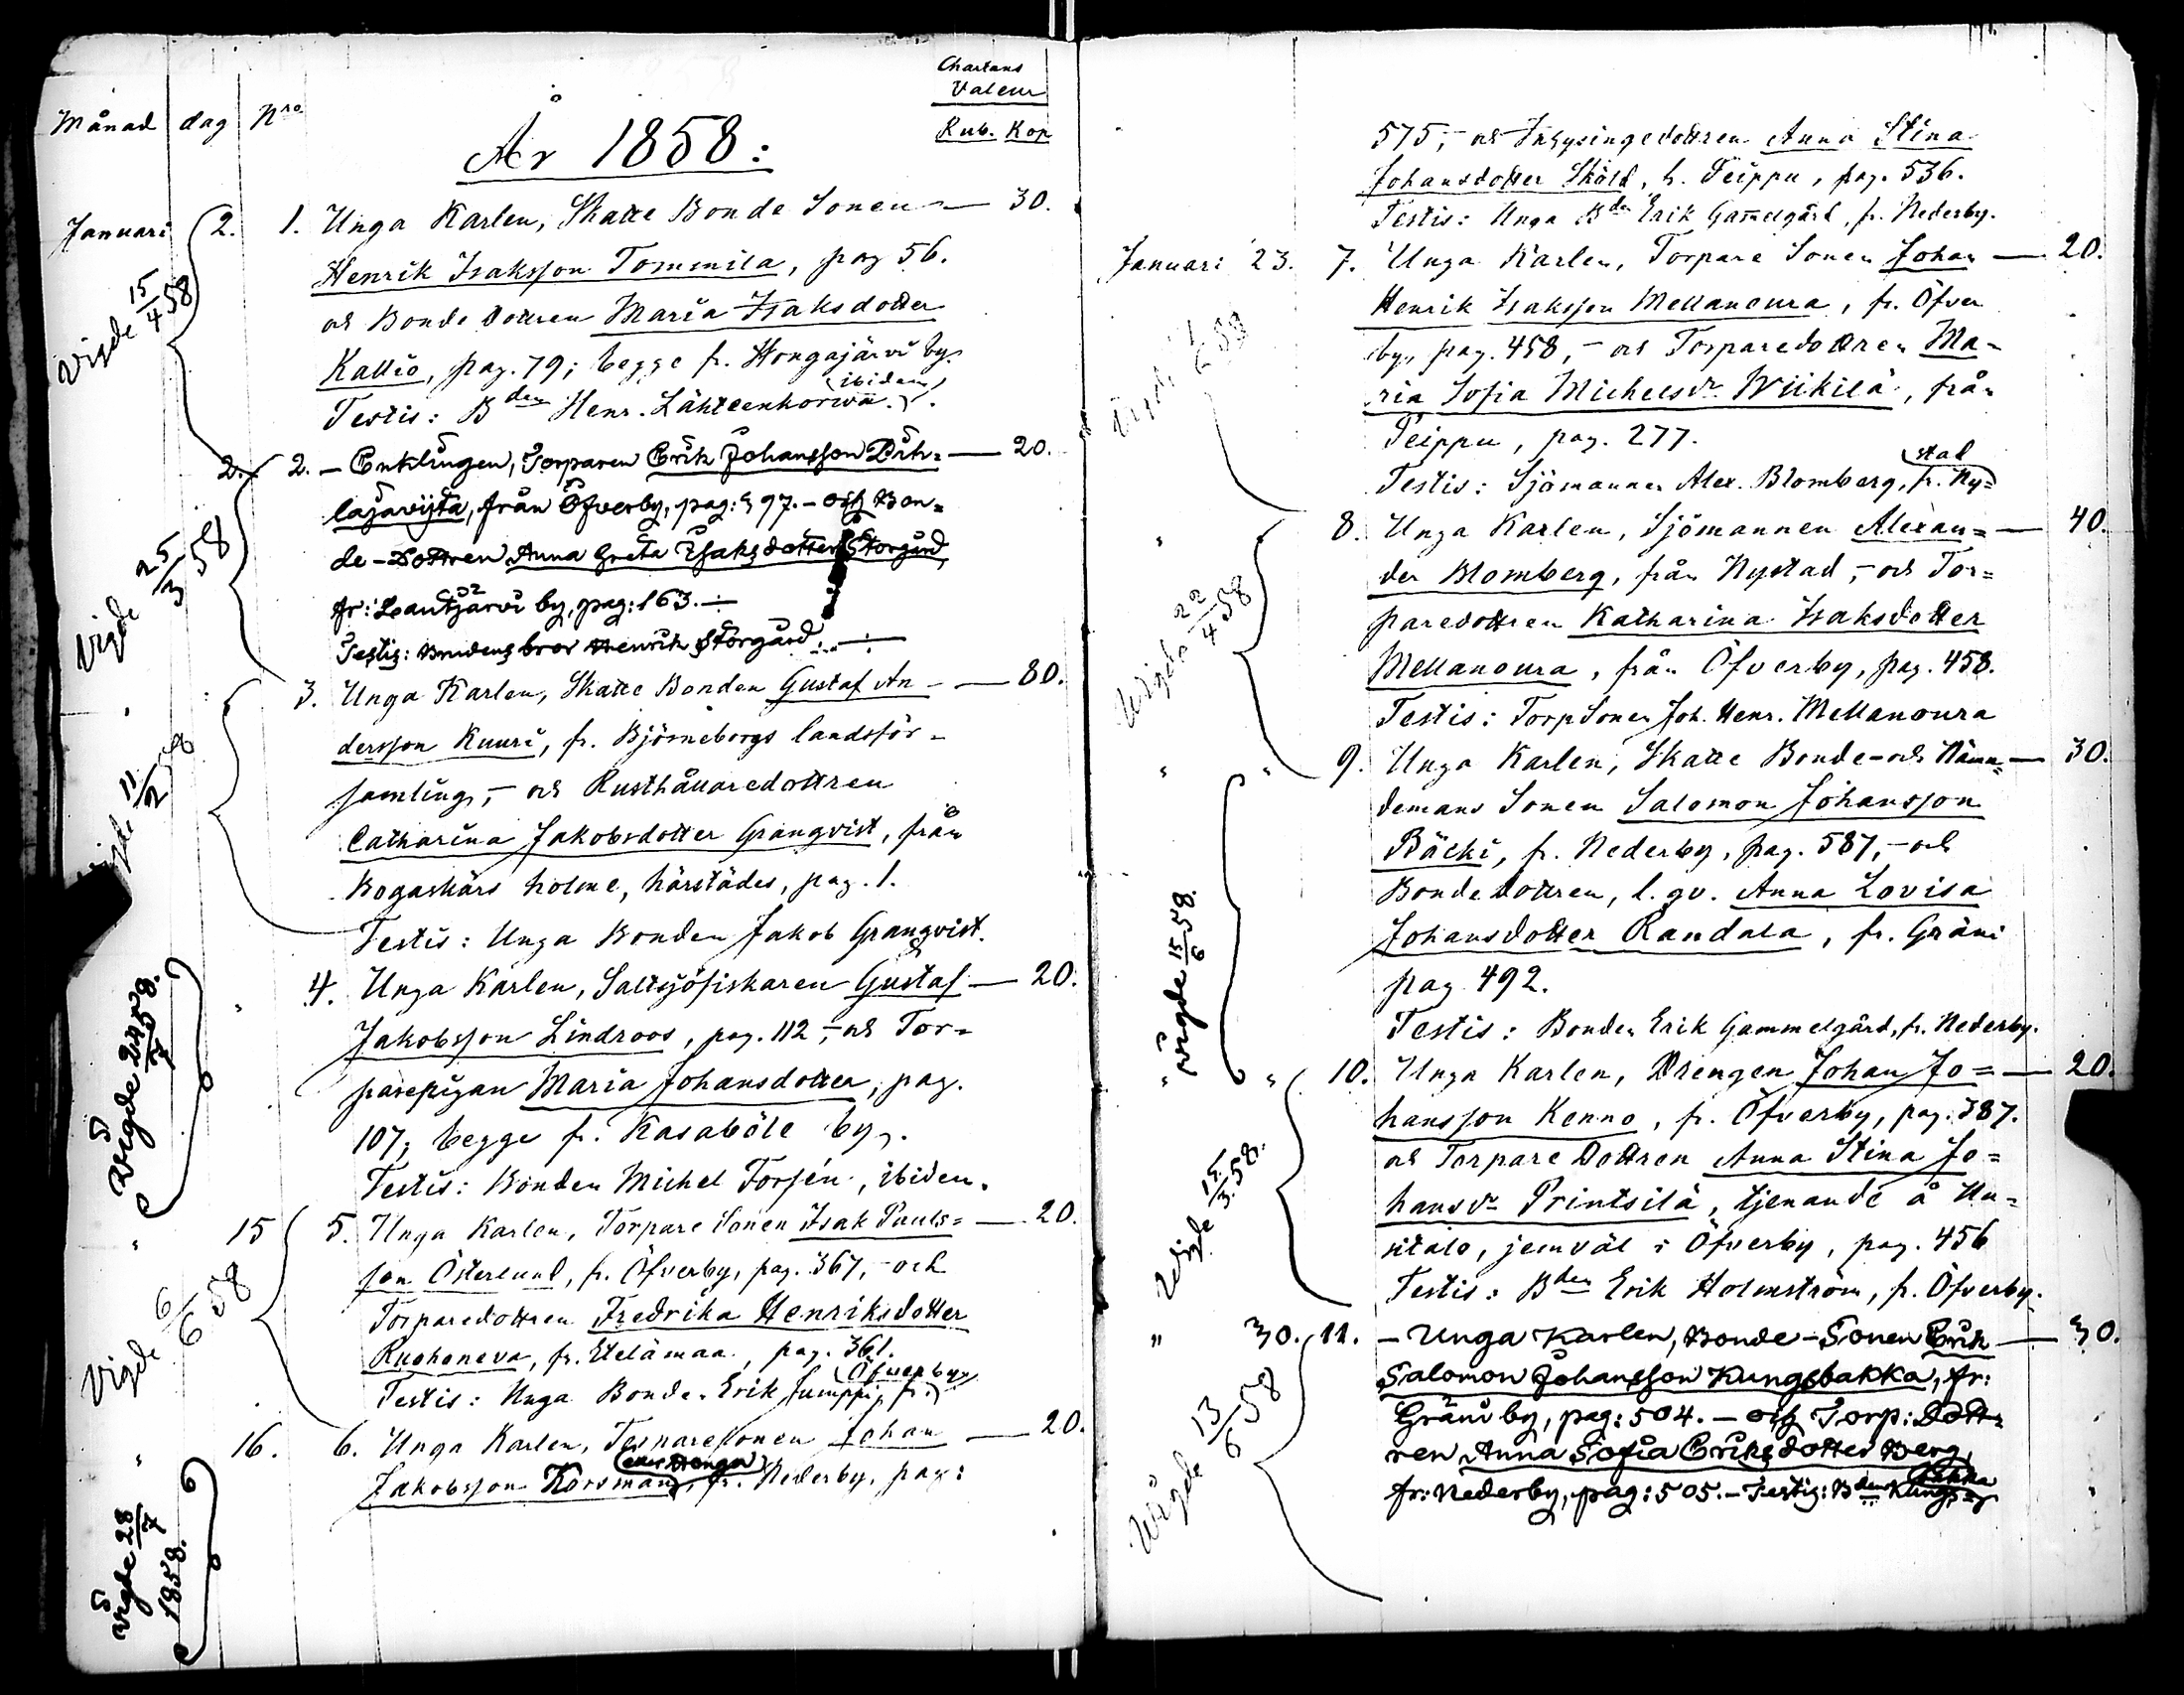 Chartans
Valeur
Månad dag Nro Rub. Kop
År 1858:
Januari 2. 1. Unga Karlen, Skatte Bonde Sonen — 30.
Henrik Isaksson Tommila, pag 56.
och Bonde Dottren Maria Isaksdotter
Kallio, pag. 79; begge fr. Hongajärvi by.
(ibidem)
Testis: Bden Henr. Lähteenkorwa.
Vigde 15/4 58
2. 2. – Enklingen, Torparen Erik Johansson Pih= — 20.
lajaviita, från Öfverby, pag: 397. – och Bon=
de-Dottren Anna Greta Isaksdotter Storgård
fr: Lautjärvi by, pag: 163. –
Testis: Brudens bror Henrik Storgård.
Vigde 25/3 58
3. Unga Karlen, Skatte Bonden Gustaf An- — 80.
dersson Kuuri, fr. Björneborgs landsför-
samling, – och Rusthållaredottren
Catharina Jakobsdotter Granqvist, från
Bogaskärs holme, härstädes, pag. 1.
Testis: Unga Bonden Jakob Granqvist.
Vigde 11/2 58
" 4. Unga Karlen, Saltsjöfiskaren Gustaf — 20.
Jakobsson Lindroos, pag. 112, – och Tor=
parepigan Maria Johansdotter, pag.
107, begge fr. Kasaböle by.
Testis: Bonden Michel Forsén, ibidem.
Vigde 24/7 58.
" 15 5. Unga Karlen, Torpare Sonen Isak Pauls= — 20.
son Österlund, fr. Öfverby, pag. 367, – och
Torparedottren Fredrika Henriksdotter
Ruohoneva, fr. Etelämaa, pag. 361.
Öfverby
Testis: Unga Bonden Erik Jumppi, fr.
Vigde 6/6 58
" 16. 6. Unga Karlen, Torparesonen Johan — 20.
(eller Honga)
Jakobsson Korsman, fr. Nederby, pag:
Vigde 28/7 1858.
575, – och Inhysingedottren Anna Stina
Johansdotter Sköld, fr. Peippu, pag. 536.
Testis: Unga Bden Erik Gammelgård, fr. Nederby.
Januari 23. 7. Unga Karlen, Torpare Sonen Johan — 20.
Henrik Isaksson Mellanoura, fr. Öfver
by, pag. 458, – och Torparedottren Ma-
ria Sofia Michelsdr Wiikilä, från
Peippu, pag. 277.
stad
Testis: Sjömannen Alex. Blomberg, fr. Ny=
" 8. Unga Karlen, Sjömannen Alexan= — 40.
der Blomberg, från Nystad, – och Tor=
paredottren Katharina Isaksdotter
Mellanoura, från Öfverby, pag. 458.
Testis: TorpSonen Joh. Henr. Mellanoura
Wigde 22/4 58
" " 9. Unga Karlen, Skatte Bonde- och Näm= — 30.
demans Sonen Salomon Johansson
Bäcki, fr. Nederby, pag. 587, – och
Bonde Dottren, l. qv. Anna Lovisa
Johansdotter Randala, fr. Gräni
pag 492.
Testis: Bonden Erik Gammelgård, fr. Nederby.
vigde 15/6 58.
" " 10. Unga Karlen, Drengen Johan Jo= — 20.
hansson Kenno, fr. Öfverby, pag. 387.
och Torpare Dottren Anna Stina Jo=
hansdr Printsilä, tjenande å Uu=
sitalo, jemväl i Öfverby, pag. 456
Testis: Bden Erik Holmström, fr. Öfverby.
Wigde 15/3 58.
" 30. 11. – Unga Karlen, Bonde-Sonen Erik — 30.
Salomon Johansson Kungsbakka, fr:
Gräni by, pag: 504. – och Torp: Dott=
ren Anna Sofia Eriksdotter Berg,
bakka
fr: Nederby, pag: 505. – Testis: Bden Kungs=
Wigde 13/6 58